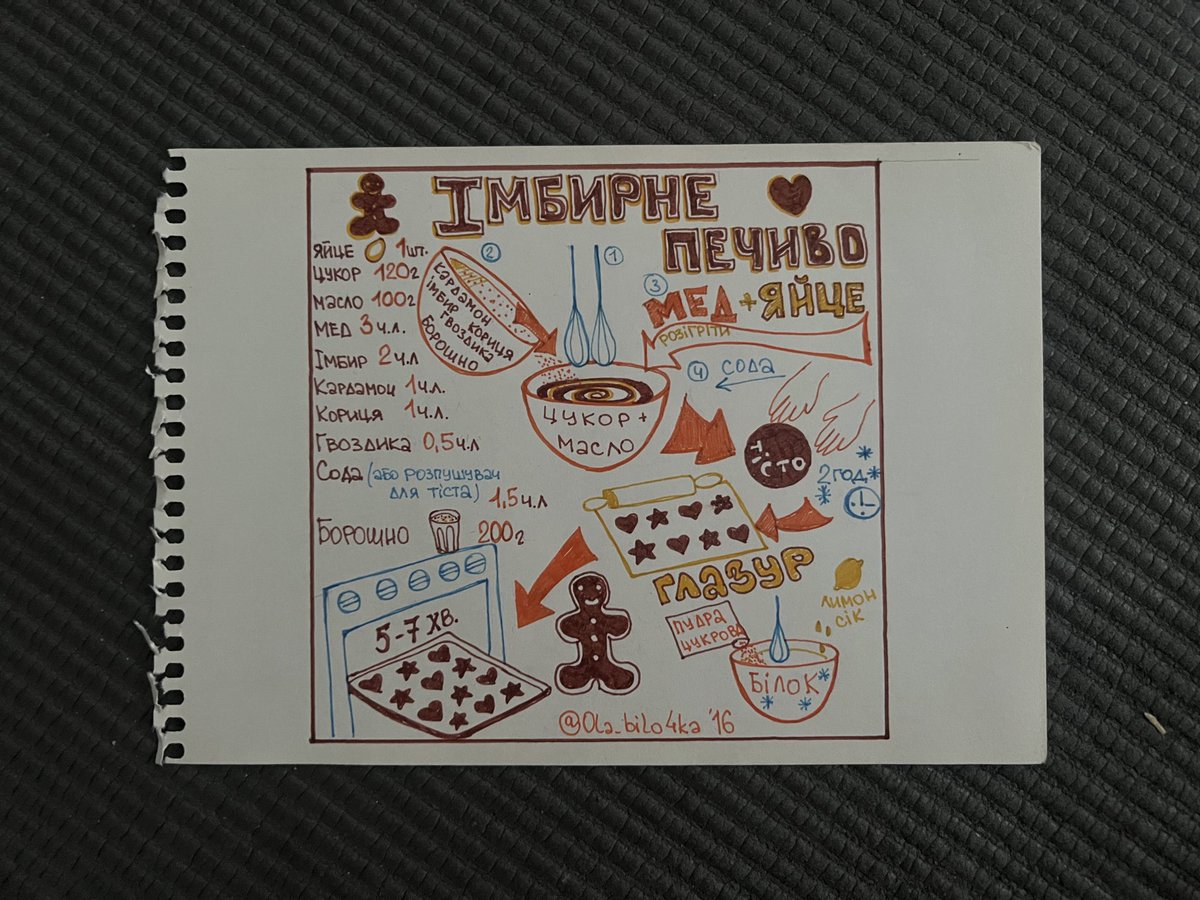 Імбирне
печиво
яйце 1шт.
цукор 120г
масло 100г
мед 3ч.л.
Імбир 2ч.л
Кардамон 1ч.л.
Кориця 1ч.л.
Гвоздика 0,5ч.л
Сода (або розпушувач
для тіста) 1,5ч.л
Борошно 200г
2
Кардамон
імбир кориця
гвоздика
борошно
1
цукор+
масло
3
мед+яйце
розігріти
4 сода
тісто
2 год.
глазур
лимон
сік
пудра
цукрова
білок
5-7 хв.
@Ola_bilo4ka '16